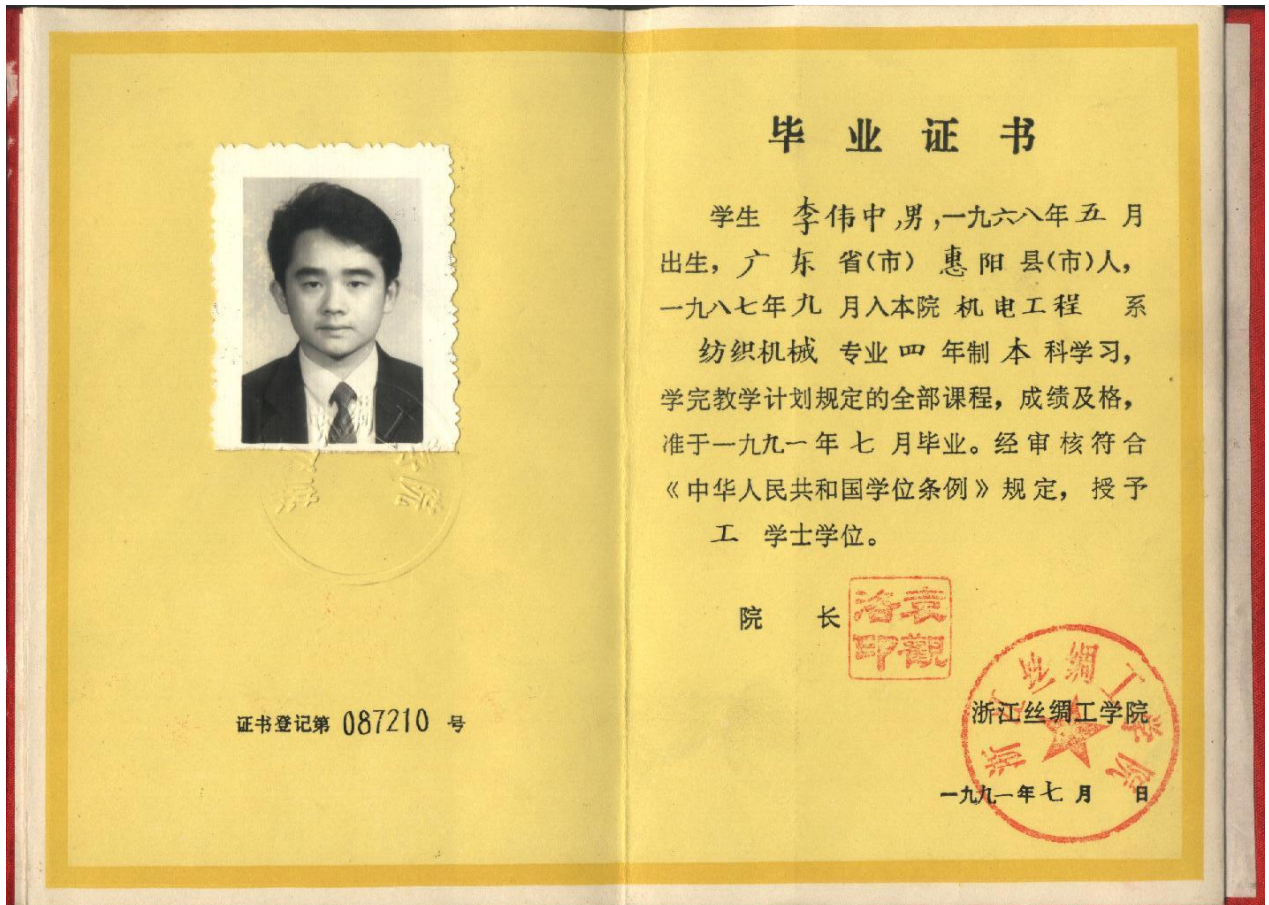 证书登记第 087210 号
毕业证书
学生 李伟中,男,一九六八年五月
出生,广东省(市)惠阳县(市)人,
一九八七年九月入本院机电工程系
纺织机械专业四年制本科学习,
学完教学计划规定的全部课程,成绩及格,
准于一九九一年七月毕业。经审核符合
《中华人民共和国学位条例》规定,授予
工学士学位。
院长
袁觀
洛印
浙江丝绸工学院
浙江丝绸工学院
一九九一年七月 日